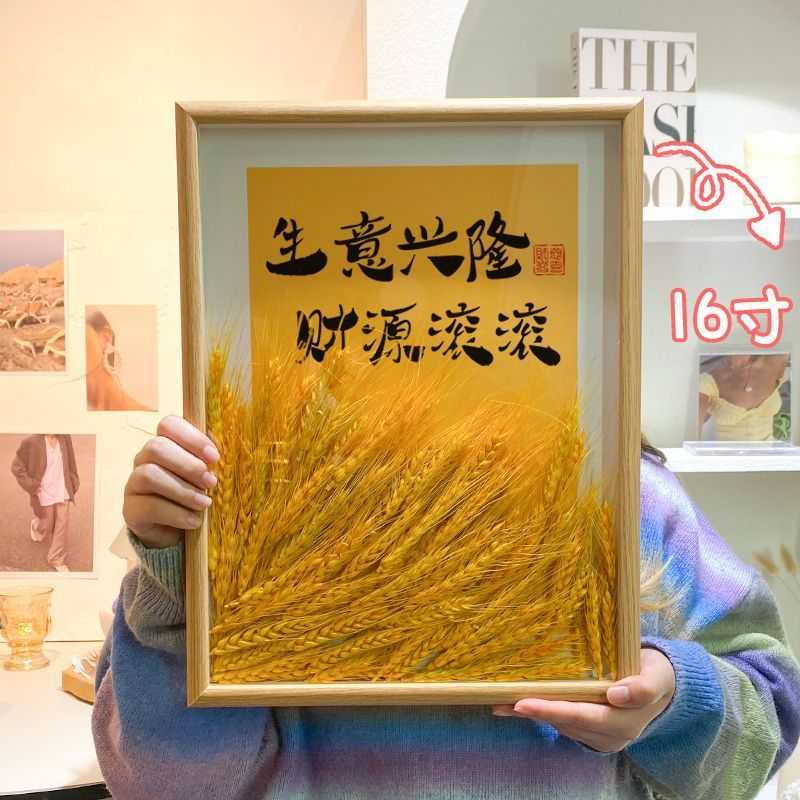 生意兴隆
财源滚滚
THE
16寸